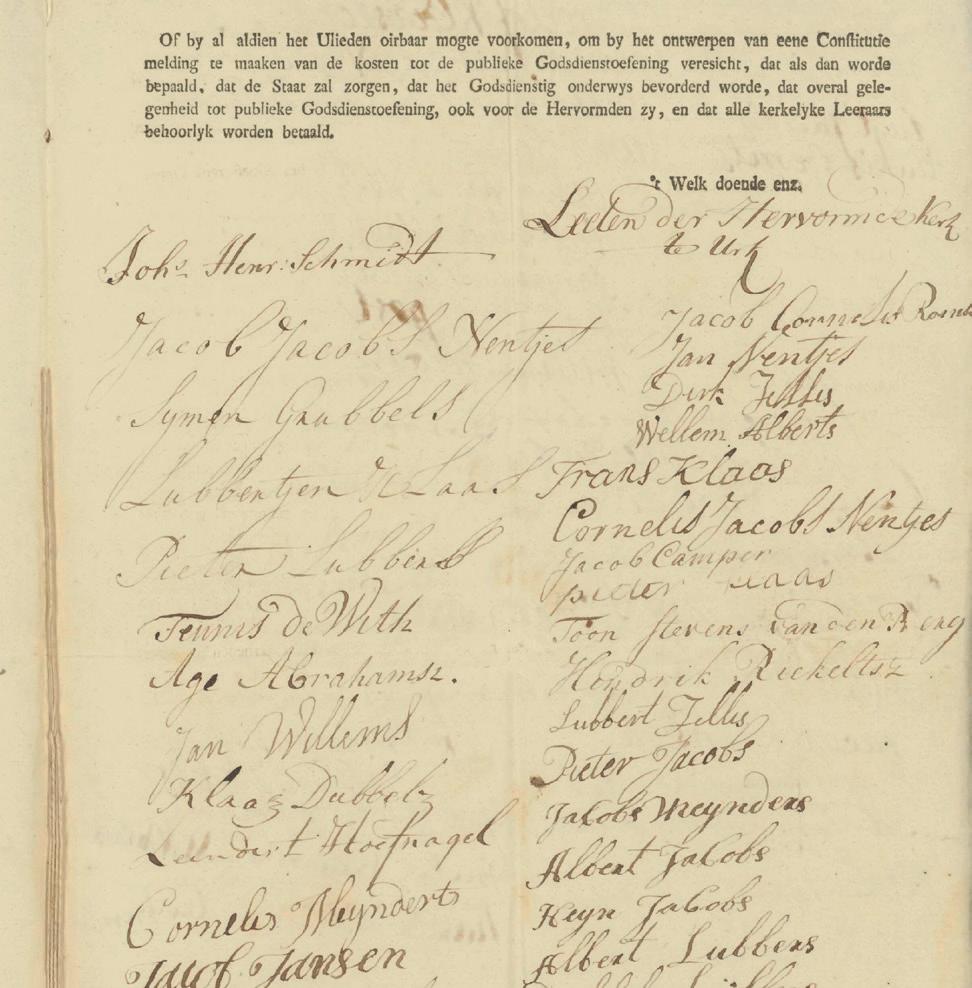 Of by al aldien het Ulieden oirbaar mogte voorkomen, om by het ontwerpen van eene Constitutie
melding te maaken van de kosten tot de publieke Godsdienstoefening veresicht, dat als dan worde
bepaald, dat de Staat zal zorgen, dat het Godsdienstig onderwys bevorderd worde, dat overal gele-
genheid tot publieke Godsdienstoefening, ook voor de Hervormden zy, en dat alle kerkelyke Leeraars
behoorlyk worden betaald.
't Welk doende enz.
Leeden der Hervormde Kerk
te Urk
Johs Henr: Schmidt
Jacob Jacobs Nentjes
Symen Grubbels
Lubbertjen Klaas
Pieter Lubberts
Teunis de With
Age Abrahamsz.
Jan Willems
Klaas Dubbelz
Leendert Hoefnagel
Cornelis Meynderts
Jacob Jansen
Jacob Cornelis
Jan Nentjes
Dirk Jellis
Wellem Alberts
Frans Klaas
Cornelis Jacobs Nentjes
Jacob Camper
pieter
Toon stevens van den Berg
Hendrik Riekeltsz
Lubbert Jellis
Pieter Jacobs
Jacobs Meynders
Albert Jacobs
Heyn Jacobs
Albert Lubbers